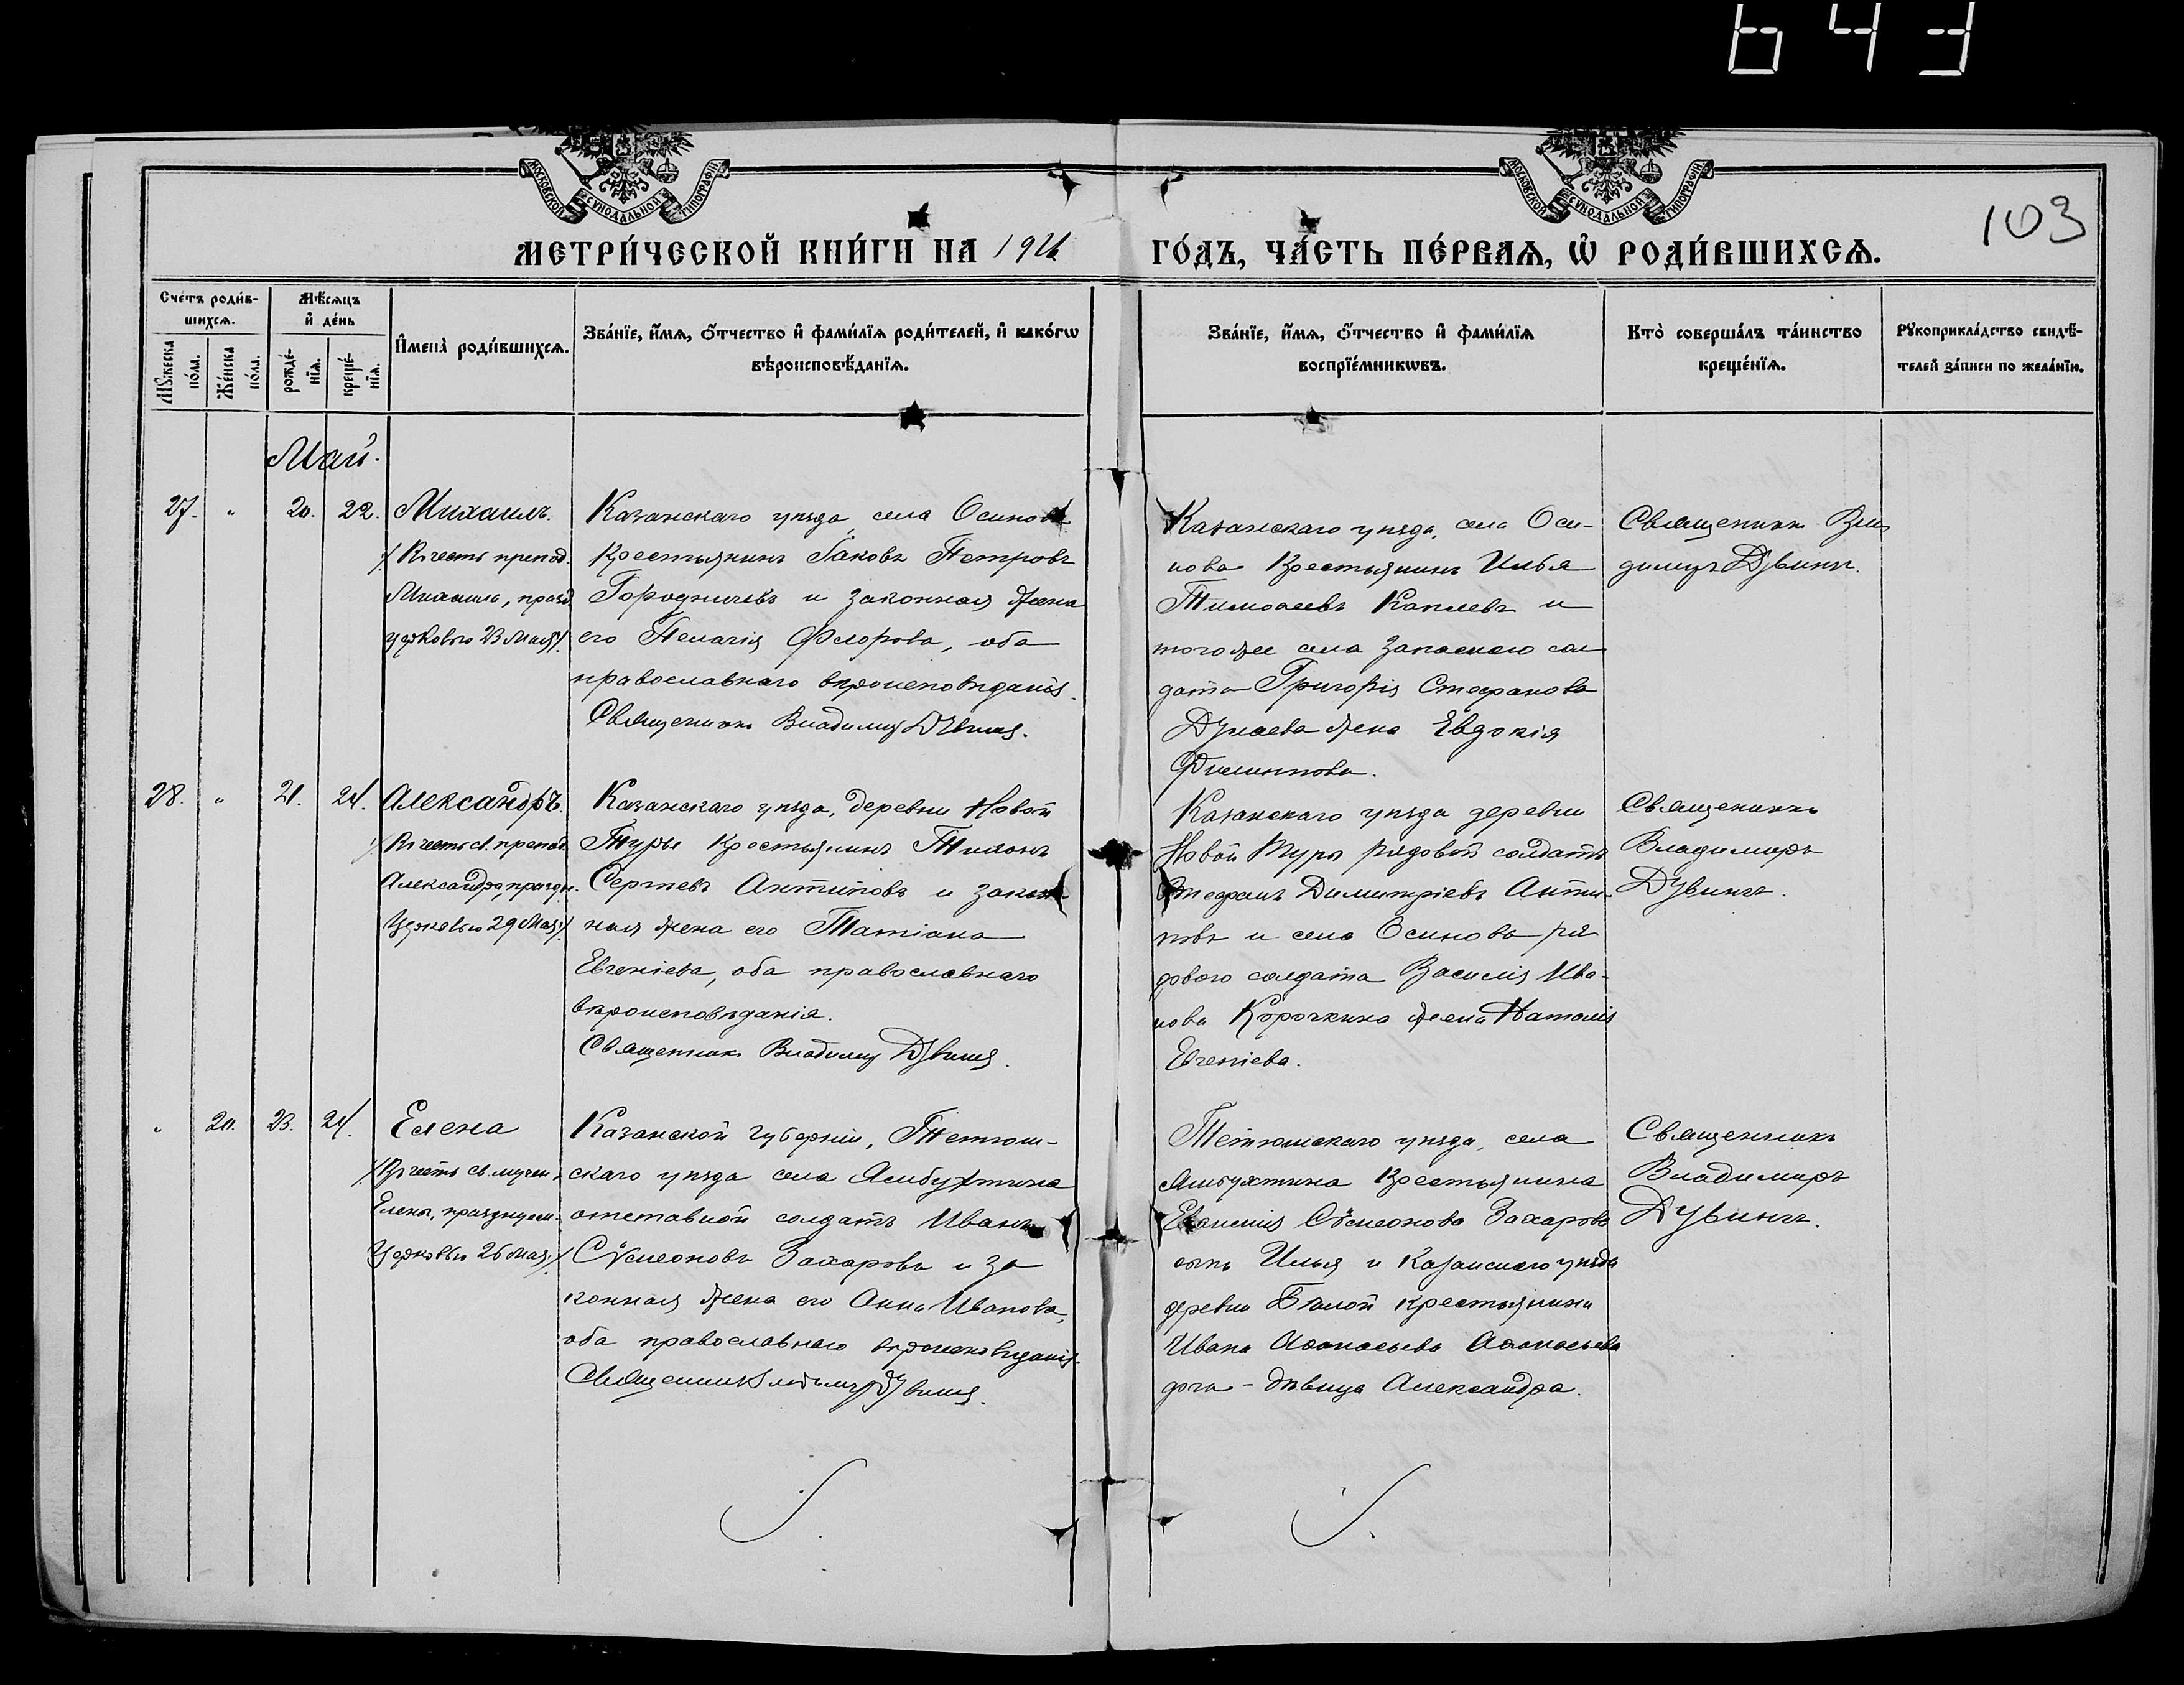 643
МОСКОВСКОЙ СѴНОДАЛЬНОЙ ТИПОГРАФІИ
МОСКОВСКОЙ СѴНОДАЛЬНОЙ ТИПОГРАФІИ
103
МЕТРИ́ЧЕСКОЙ КНИ́ГИ НА
ГО́ДЪ, ЧА́СТЬ ПЕ́РВАѦ, Ѡ҆ РОДИ́ВШИХСѦ.
Сче́тъ роди́в-
шихсѧ.
Мꙋ́жеска по́ла.
Же́нска по́ла.
Мѣ́сѧцъ
и҆ де́нь
рожде́-
нїѧ.
креще́-
нїѧ.
И҆мена̀ роди́вшихсѧ.
Зва́нїе, и҆́мѧ, ѻ҆́тчество и҆ фами́лїѧ роди́телей, и҆ како́гѡ
вѣроисповѣ́данїѧ.
Зва́нїе, и҆́мѧ, ѻ҆́тчество и҆ фами́лїѧ
воспрїе́мникѡвъ.
Кто̀ соверша́лъ та́инство
креще́нїѧ.
Рꙋкоприкла́дство свидѣ́-
телей за́писи по жела́нїю.
Май.
27. " 20. 22.
Михаилъ.
/Въ честь препод.
Михаила, празд.
церковью 23 Мая/.
Казанскаго уѣзда, села Осинова
Крестьянинъ Іаковъ Петровъ
Городничевъ и законная жена
его Пелагія Флорова, оба
православнаго вѣроисповѣданія.
Священникъ Владимиръ Дувинъ.
Казанскаго уѣзда, села Оси-
нова Крестьянинъ Илья
Тимоѳеевъ Каплевъ и
того же села Запаснаго сол
дата Григорія Стефанова
Дунаева жена Евдокія
Филиппова.
Священникъ Вла
димиръ Дувинъ.
28. " 21. 24.
Александръ.
/Въ честь св. препод.
Александра, праздн.
Церковью 29 Мая/.
Казанскаго уѣзда, деревни Новой
Туры Крестьянинъ Тихонъ
Сергѣевъ Антиповъ и закон
ная жена его Татіана
Евгеніева, оба православнаго
вѣроисповѣданія.
Священникъ Владимиръ Дувинъ.
Казанскаго уѣзда деревни
Новой Туры рядовой солдатъ
Стефанъ Димитріевъ Анти-
повъ и села Осинова ря
дового солдата Василія Ива-
нова Корочкина жена Наталія
Евгеніева.
Священникъ
Владимиръ
Дувинъ.
" 20. 23. 24.
Елена
/Въ честь св. мучен.
Елены, празднуем.
Церковью 26 Мая/.
Казанской Губерніи, Тетюш-
скаго уѣзда села Ямбухтина
отставной солдатъ Иванъ
Сѵмеоновъ Захаровъ и за
конная жена его Анна Иванова,
оба православнаго вѣроисповѣданія.
Священникъ Владимиръ Дувинъ.
Тетюшскаго уѣзда, села
Ямбухтина Крестьянина
Сѵмеонова Захарова
сынъ Илья и Казанскаго уѣзда
деревни Бѣлой крестьянина
Ивана Аѳанасьева Аѳанасьева
дочь - дѣвица Александра.
Священникъ
Владимиръ
Дувинъ.